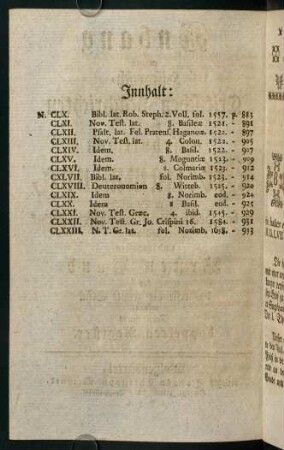 Innhalt:
N. CLX. Bibl. lat. Rob. Steph. 2. Voll. fol. 1557. p. 883
CLXI. Nov. Test. lat. 8. Basileæ 1521. - 891
CLXII. Psalt. lat. Fol. Pratens. Haganoæ. 1522. - 897
CLXIII. Nov. Test. lat. 4. Colon. 1522. - 905
CLXIV. Idem. 8. Basil. 1522. - 907
CLXV. Idem. 8. Moguntiæ 1523. - 909
CLXVI. Idem. 8. Colmariæ 1523. - 912
CLXVII. Bibl. lat. fol. Norimb. 1523. - 914
CLXVIII. Deuteronomion 8. Witteb. 1525. - 920
CLXIX. Idem 8. Norimb. eod. - 924
CLXX. Idem 8 Basil. eod. - 925
CLXXI. Nov. Test. Græc. 4. ibid. 1545. - 929
CLXXII. Nov. Test. Gr. Jo. Crispini 16. 1584. - 931
CLXXIII. N. T. Gr. lat. fol. Norimb. 1658. - 933